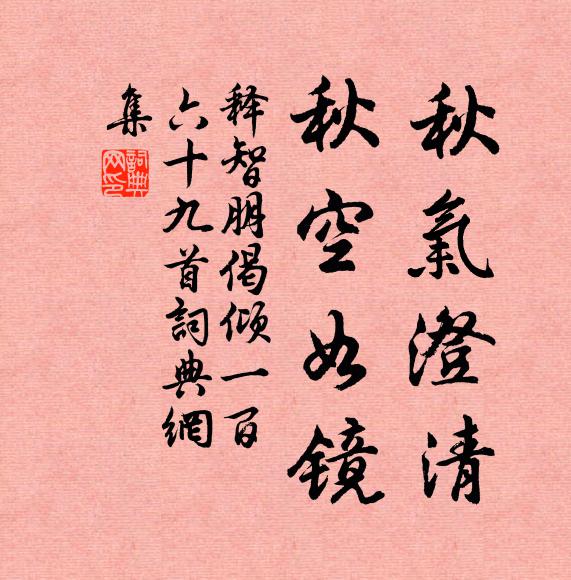 秋氣澄清
秋空如镜
释智朋偈倾一百
六十九首詞典網
集
詞典
网印